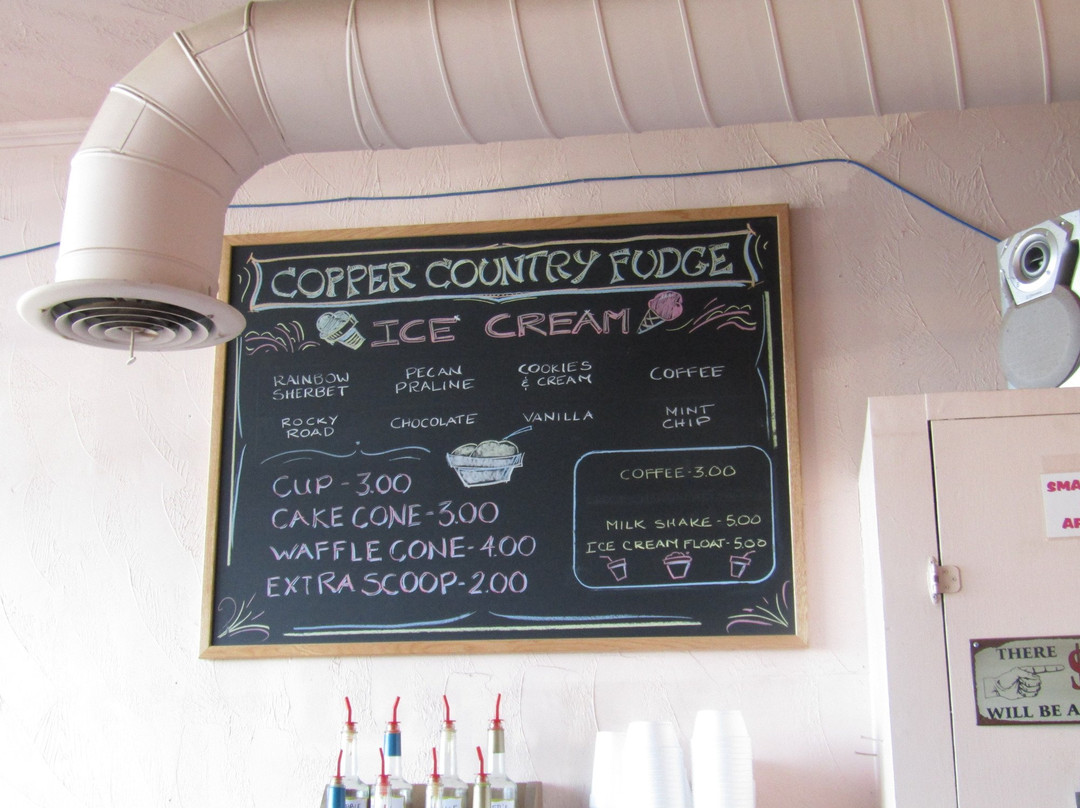 COPPER COUNTRY FUDGE
ICE CREAM
RAINBOW
SHERBET
PECAN
PRALINE
COOKIES
& CREAM
COFFEE
ROCKY
ROAD
CHOCOLATE
VANILLA
MINT
CHIP
CUP - 3.00
CAKE CONE - 3.00
WAFFLE CONE - 4.00
EXTRA SCOOP - 2.00
COFFEE - 3.00
MILK SHAKE - 5.00
ICE CREAM FLOAT - 5.00
SMA
AF
THERE
WILL BE A